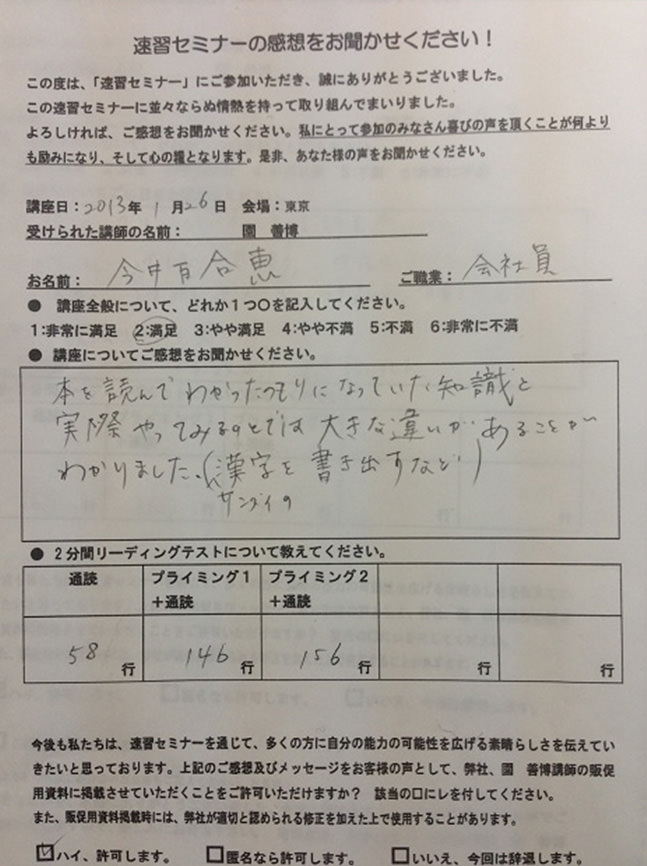 速習セミナーの感想をお聞かせください！
この度は、「速習セミナー」にご参加いただき、誠にありがとうございました。
この速習セミナーに並々ならぬ情熱を持って取り組んでまいりました。
よろしければ、ご感想をお聞かせください。私にとって参加のみなさん喜びの声を頂くことが何より
も励みになり、そして心の糧となります。是非、あなた様の声をお聞かせください。
講座日：2013年 1月26日 会場：東京
受けられた講師の名前： 園 善博
お名前： 今井百合恵 ご職業： 会社員
● 講座全般について、どれか１つ〇を記入してください。
1:非常に満足 2:満足 3:やや満足 4:やや不満 5:不満 6:非常に不満
● 講座についてご感想をお聞かせください。
本を読んでわかったつもりになっていた知識と
実際やってみるのとでは大きな違いがあることが
わかりました。(漢字を書き出すなど)
サンズイの
● 2分間リーディングテストについて教えてください。
通読 プライミング１ プライミング２
＋通読 ＋通読
58行 146行 156行 行 行
今後も私たちは、速習セミナーを通じて、多くの方に自分の能力の可能性を広げる素晴らしさを伝えてい
きたいと思っております。上記のご感想及びメッセージをお客様の声として、弊社、園 善博講師の販促
用資料に掲載させていただくことをご許可いただけますか？ 該当の口にレを付してください。
また、販促用資料掲載時には、弊社が適切と認められる修正を加えた上で使用することがあります。
☑ハイ、許可します。 □匿名なら許可します。 □いいえ、今回は辞退します。